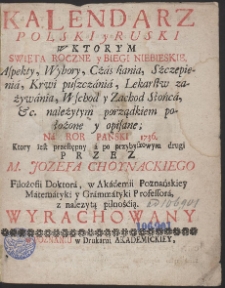 KALENDARZ
POLSKI y RUSKI
W KTORYM
SWIĘTA ROCZNE y BIEGI NIEBIESKIE,
Aspekty, Wybory, Czás siania, Szczepie-
nia, Krwi puszczánia, Lekarstw zá-
żywánia, Wschod y Zachod Słońcá,
&c. należytym porządkiem po-
łożone y opisáne;
NA ROK PANSKI 1746.
Ktory iest przestępny á po przybyszowym drugi
PRZEZ
M. JOZEFA CHOYNACKIEGO
Filozofii Doktorá, w Akádemii Poznáńskiey
Mátemátyki y Grámmátyki Professorá,
z należytą pilnością.
WYRACHOWANY
w POZNANIU w Drukarni AKADEMICKIEY,